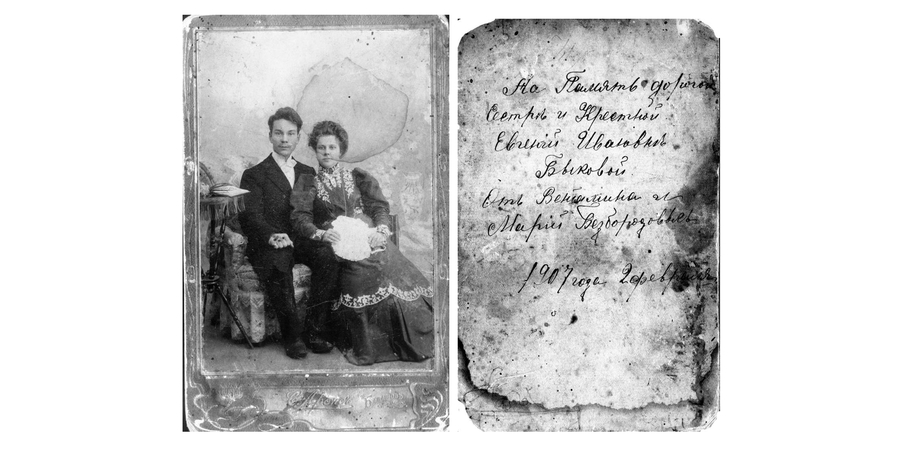 На Память дорогой
Сестрѣ и Крестной
Евгеніи Ивановнѣ
Быковой
Отъ Венiамина и
Маріи Безбородовыхъ
1907 года 2 февраля